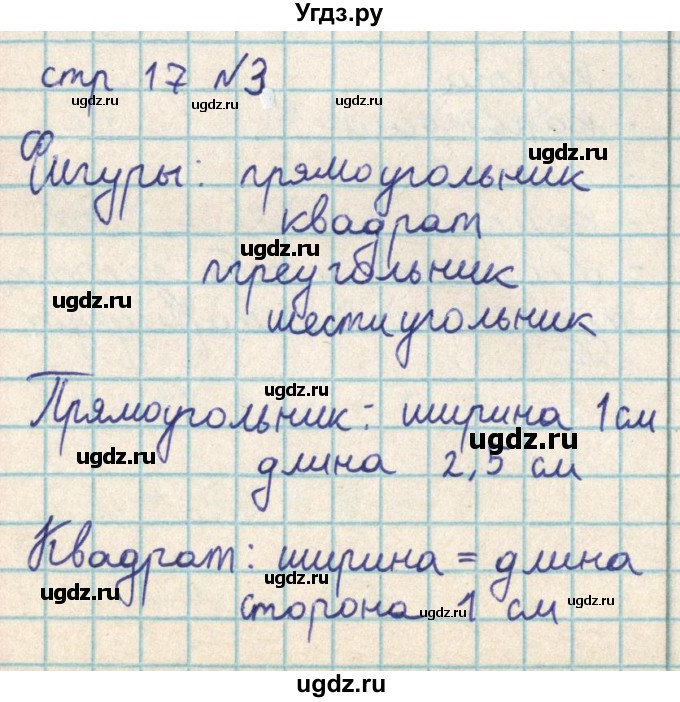 Угдз.ру
стр 17 №3
ugdz.ru ugdz.ru ugdz.ru
Фигуры: прямоугольник
ugdz.ru
квадрат
ugdz.ru
треугольник
ugdz.ru
шестиугольник
ugdz.ru
Прямоугольник: ширина 1 см
ugdz.ru ugdz.ru
длина 2,5 см
Квадрат: ширина = длина
ugdz.ru ugdz.ru ugdz.ru
сторона 1 см
ugdz.ru
ugdz.ru